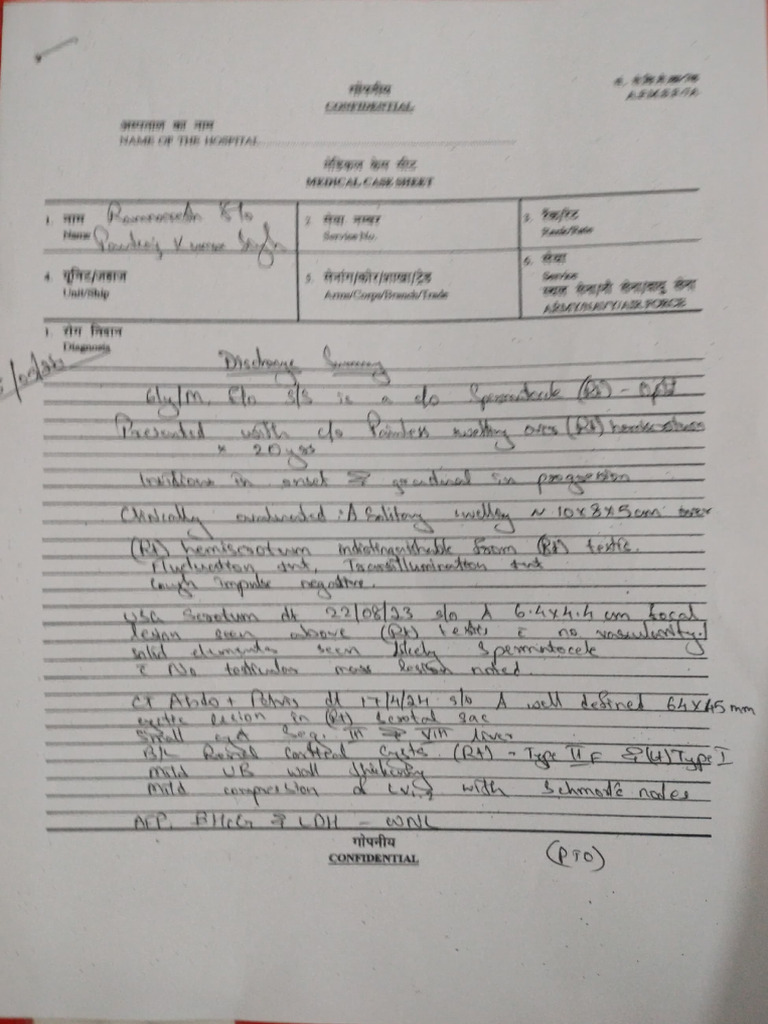 गोपनीय
CONFIDENTIAL
अस्पताल का नाम
NAME OF THE HOSPITAL
मेडिकल केस शीट
MEDICAL CASE SHEET
1. नाम
Name
Kumar Singh
2. सेवा नम्बर
Service No.
3. रैंक/रेट
Rank/Rate
4. यूनिट/जहाज
Unit/Ship
5. सेनांग/कोर/शाखा/ट्रेड
Arm/Corps/Branch/Trade
6. सेवा
Service
थल सेना/नौ सेना/वायु सेना
ARMY/NAVY/AIR FORCE
1. रोग निदान
Diagnosis
Discharge Summary
is a c/o Spermatocele (Rt) -
Presented with c/o Painless swelling over (Rt) hemiscrotum
x 20 yrs
Insidious in onset & gradual in progression
Clinically : A Solitary swelling ~ 10x8x5cm over
(Rt) hemiscrotum indistinguishable from (Rt) testis.
Fluctuation +nt, Transillumination +nt
Cough impulse negative.
USG Scrotum dt 22/08/23 s/o A 6.4x4.4 cm focal
lesion seen above (Rt) testis c no vascularity/
solid elements seen likely spermatocele
c No testicular mass lesion noted.
CT Abdo + Pelvis dt 17/4/24 s/o A well defined 64x45mm
cystic lesion in (Rt) scrotal sac
Small cyst Seg. III & VIII liver
B/L Renal cortical cysts (Rt) - Type II F & (Lt) Type I
Mild UB wall thickening
Mild compression of with Schmorl's nodes
AFP, BHCG & LDH - WNL
गोपनीय
CONFIDENTIAL
(PTO)